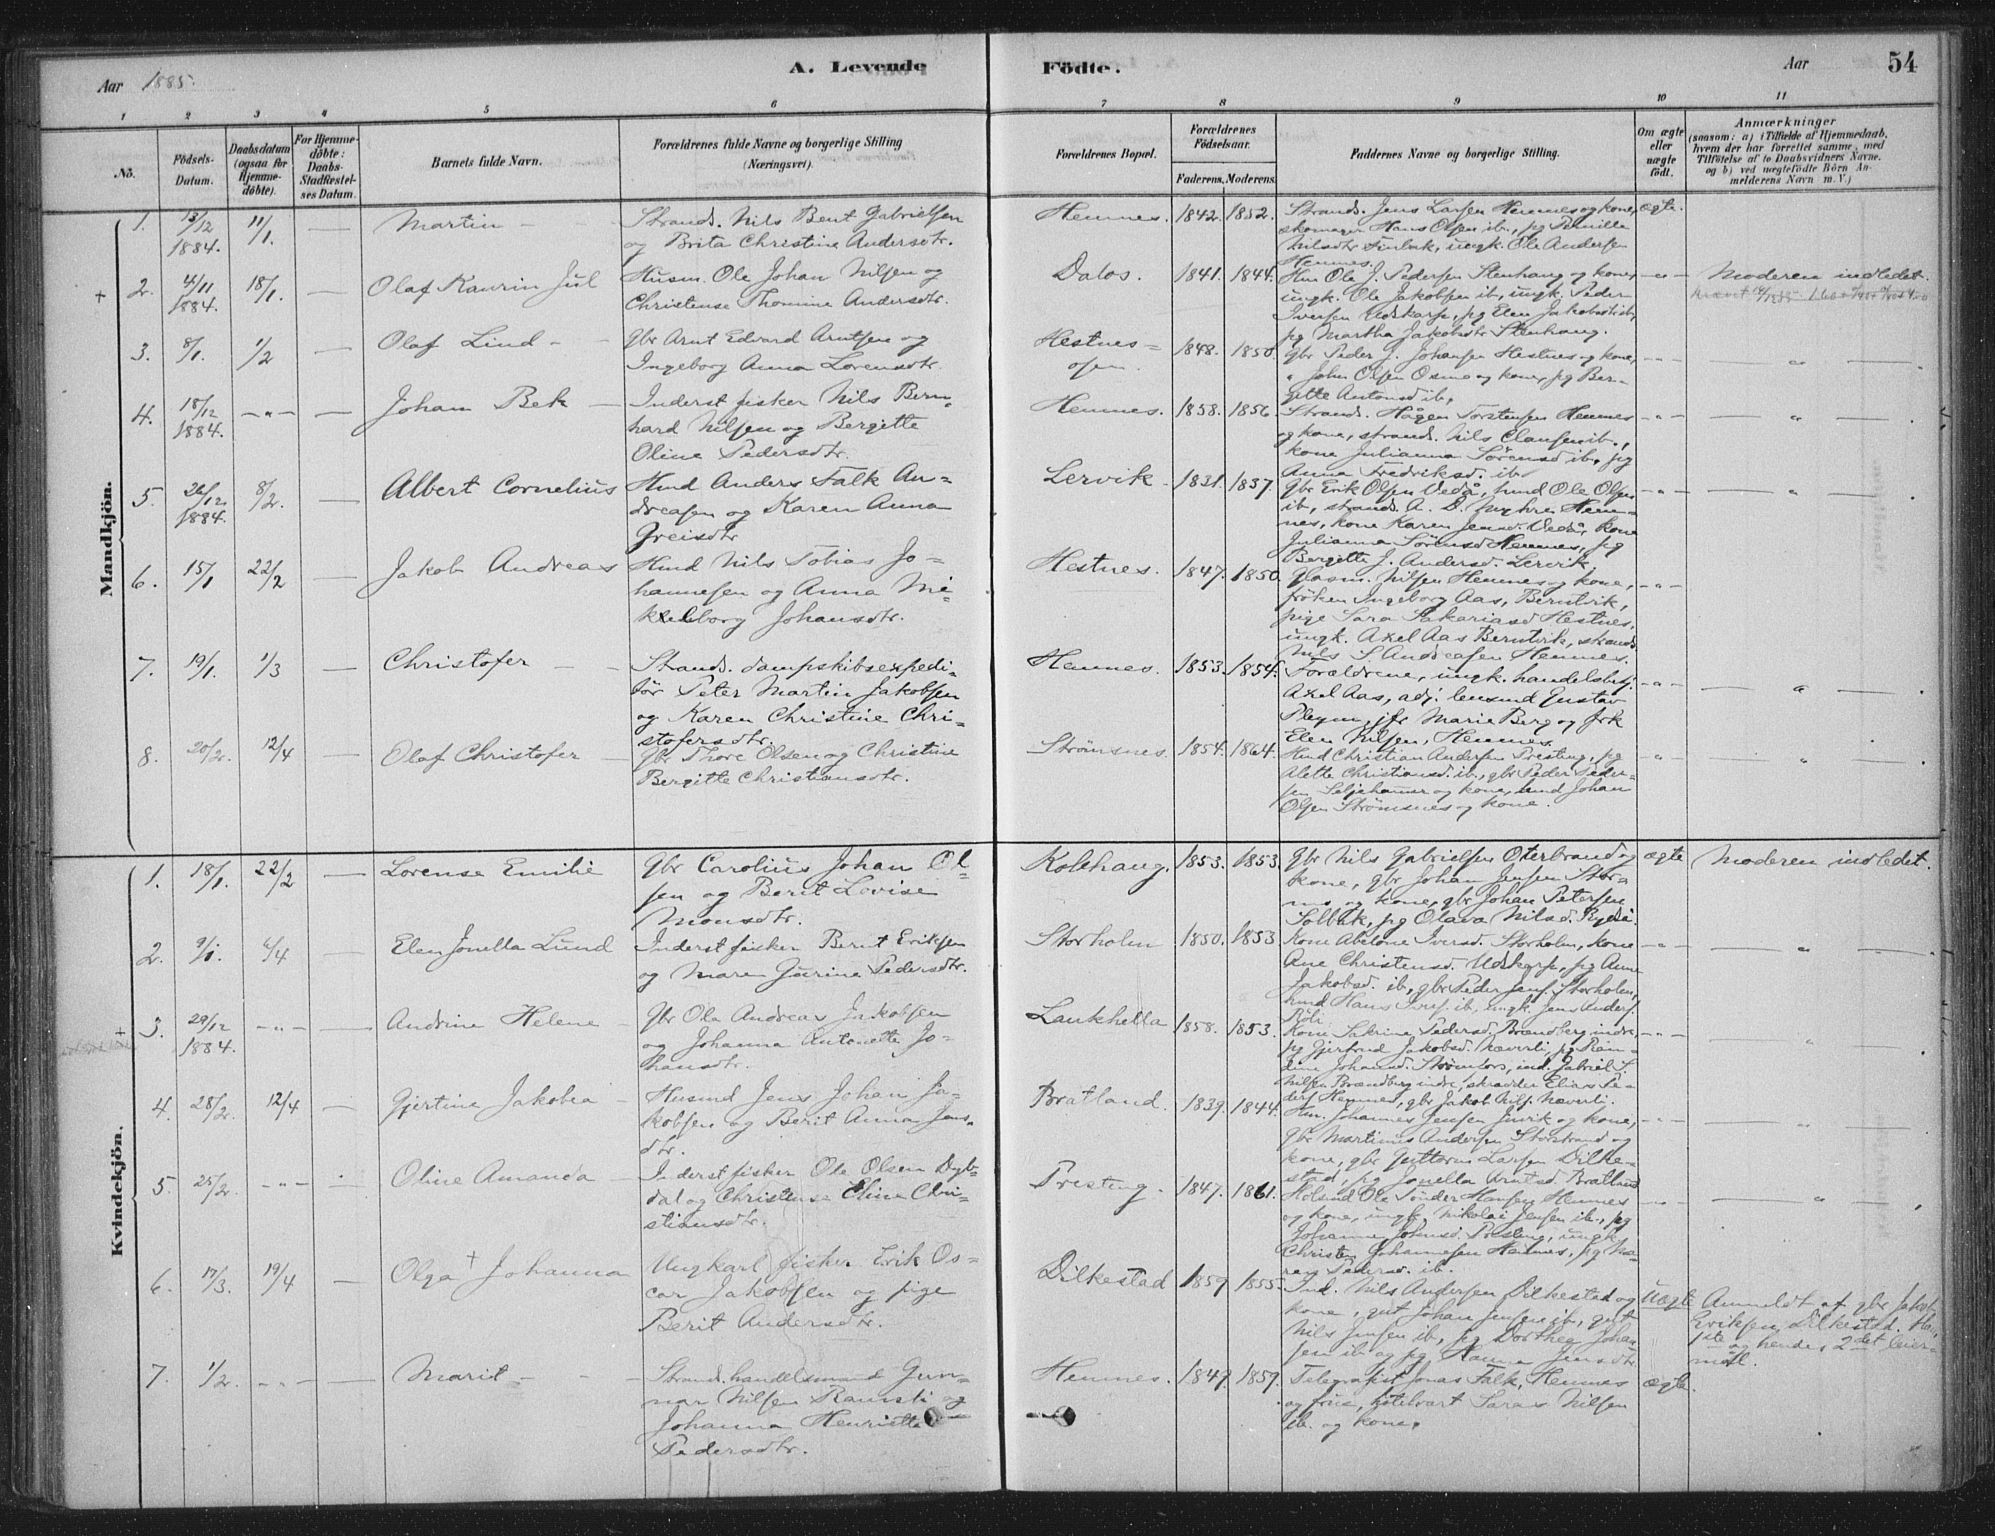 Aar 1885.
A. Levende
Födte.
Aar
54
1 2 3 4 5 6 7 8 9 10 11
No.
Födsels-
Datum.
Daabsdatum
(ogsaa for
Hjemme-
döbte).
For Hjemme-
döbte:
Daabs-
Stadfestel-
ses Datum.
Barnets fulde Navn.
Forældrenes fulde Navne og borgerlige Stilling
(Næringsvei).
Forældrenes Bopæl.
Forældrenes
Födselsaar.
Faderens. Moderens.
Faddernes Navne og borgerlige Stilling.
Om ægte
eller
uægte
födt.
Anmærkninger
(saasom: a) i Tilfælde af Hjemmedaab,
hvem der har forrettet samme, med
Tilföielse af to Daabsvidners Navne.
og b) ved uægtefödte Börn An-
melderens Navn m. V.)
Mandkjön.
1. 13/12 1884. 11/1. — Martin
Strands. Nils Bent Gabrielsen
og Brita Christine Andersdtr.
Hemnes. 1842. 1852.
Strands. Jens Larsen Hemnes og kone,
skomager Hans Olsen ib., pg Pernille
Nilsdtr, ungk. Ole Andersen
Hemnes.
ægte.
2. 4/11 1884. 18/1. — Olaf Kaurin Jul
Husm. Ole Johan Nilsen og
Christense Thomine Andersdtr.
Dalos. 1841. 1844.
Hm Ole J. Pedersen Stenhaug og kone,
ungk. Ole Jakobsen ib, ungk. Peder
Iversen Udskarp, pg Elen Jakobsdtr ib,
pg Martha Jakobsdtr Stenhaug.
-"- Moderen indledet.
3. 8/1. 1/2 — Olaf Lind
Gbr Arnt Edvard Arntsen og
Ingeborg Anna Lorensdtr.
Hestnes-
osen. 1848. 1850.
Gbr Peder J. Johansen Hestnes og kone,
" John Olsen Osmo og kone, pg Ber-
gitte Antonsd ib.
-"- — " —
4. 18/12 1884. -"- — Johan Bek
Inderst fisker Nils Bern-
hard Nilsen og Bergitte
Oline Pedersdtr.
Hemnes. 1858. 1856.
Strands. Hågen Torstensen Hemnes
og kone, strands. Nils Clausen ib.,
kone Julianna Sörensd ib., pg
Anna Fredriksd. ib.
-"- — " —
5. 26/12 1884. 8/2. — Albert Cornelius
Hmd Anders Falk An-
dreasen og Karen Anna
Greisdtr
Lervik 1831. 1837.
Gbr Erik Olsen Vedå, hmd Ole Olsen
ib, strands. A. D. Myhre Hem-
nes, kone Karen Jensd. Vedå, kone
Julianna Sörensd Hemnes, pg
Bergitte J. Andersd. Lervik.
-"- — " —
6. 15/1 22/2 — Jakob Andreas
Hmd Nils Tobias Jo-
hannesen og Anna Mi-
kkelborg Johansdtr.
Hestnes. 1847. 1850.
Nilsen Hemnes og kone,
fröken Ingeborg Aas, Berntvik,
pige Sara Sakariasd Hestnes,
ungk. Axel Aas Berntvik, strands
Nils S. Andreasen Hemnes.
-"-
7. 19/1. 1/3 — Christofer
Strands. dampskibsexpedi-
tör Peter Martin Jakobsen
og Karen Christine Chri-
stofersdtr.
Hemnes. 1853. 1854.
Forældrene, ungk. handelsbetj.
Axel Aas, adj. lensmd Gustav
Pleym, jfr Marie Berg og frk
Elen Nilsen, Hemnes.
-"- — " —
8. 20/2. 12/4 — Olaf Christofer
Gbr Thore Olsen og Christine
Bergitte Christiansdtr.
Strömsnes. 1854. 1864.
Hmd Christian Andersen Presting, pg
Alette Christiansd. ib., gbr Peder Peder-
sen Seljehammer og kone, hmd Johan
Olsen Strömsnes og kone.
-"- — " —
Kvindekjön.
1. 18/1. 22/2 — Lorense Emilie
Gbr Carolius Johan Ol-
sen og Berit Lovise
Monsdtr.
Kolbhaug. 1853. 1853.
Gbr Nils Gabrielsen Oterbrand og
kone, gbr Johan Jensen Stor-
nes og kone, gbr Johan Petersen
Solbak, pg Olava Nilsd. Rydså.
ægte Moderen indledet.
2. 9/1. 4/4 — Elen Jonella Lund
Inderst fisker Bernt Eriksen
og Maren Gurine Pedersdtr.
Storholm 1850. 1853
Kone Abelone Iversd. Storholm, kone
Ane Christensd. Udskarp, pg Anne
Jakobsd. ib, gbr Peder Jens. Storholm,
hmd Hans Ivers. ib, ungk. Jens Anders.
Röli.
-"- — " —
3. 29/12 1884. -"- — Andrine Helene
Gbr Ole Andreas Jakobsen
og Johanna Antonette Jo-
hansdtr.
Laukhella 1858. 1853.
Kone Sakrine Pedersd. Brandberg indre,
pg Gjertrud Jakobsd. Næverli, pg Ran-
dine Johansd. Strömfors, ind. Gabriel S.
Nilsen Brandberg indre, skrædder Elias Pe-
ders Hemnes, gbr Jakob Nils. Næverli.
-"- "
4. 28/2. 12/4 — Gjertine Jakobea
Husmd Jens Johan Ja-
kobsen og Berit Anna Jens-
dtr.
Bratland. 1839. 1844.
Hm. Johannes Jensen Juvik og kone,
gbr Martinus Andersen Storstrand og
kone, gbr Guttorm Larsen Dilke-
stad, pg Jonella Arntsd. Bratland
-"- — " —
5. 25/2. -"- Oline Amanda
Inderst fisker Ole Olsen Dyb-
dal og Christense Eline Chri-
stiansdtr.
Presting. 1847. 1861.
Ole Tönder Hansen Hemnes
og kone, ungk. Nikolai Jensen ib., pg
Johanna Johnsd. Presting, ungk
Christen Johannesen Hemnes, pg Ma-
ren Pedersd. ib.
-"- — " —
6. 17/3. 19/4 — Olga + Johanna
Ungkarl fisker Erik Os-
car Jakobsen og pige
Berit Andersdtr.
Dilkestad 1859 1855.
Ind. Nils Andersen Dilkestad og
kone, gut Johan Jensen ib., gut
Nils Jensen ib, pg Dorthea Johan-
sen ib og pg Hanna Jensdtr.
Uægte Anmeldt af gbr Jakob
Eriksen Dilkestad. Ha.
1ste og hendes 2det leier-
mål.
7. 1/2. -"- Marit
Strands. handelsmand Gun-
nar Nilsen Ramsli og
Johanna Henriette
Pedersdtr.
Hemnes. 1849. 1859.
Telegrafist Jonas Falk, Hemnes
og frue, Saras Nilsen
ib. og kone.
ægte.